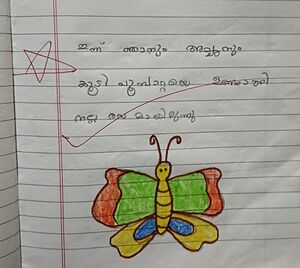 ഇന്ന് ഞാനും അച്ഛനും
കൂടി പൂമ്പാറ്റയെ ഉണ്ടാക്കി
നല്ല രസമായിരുന്നു